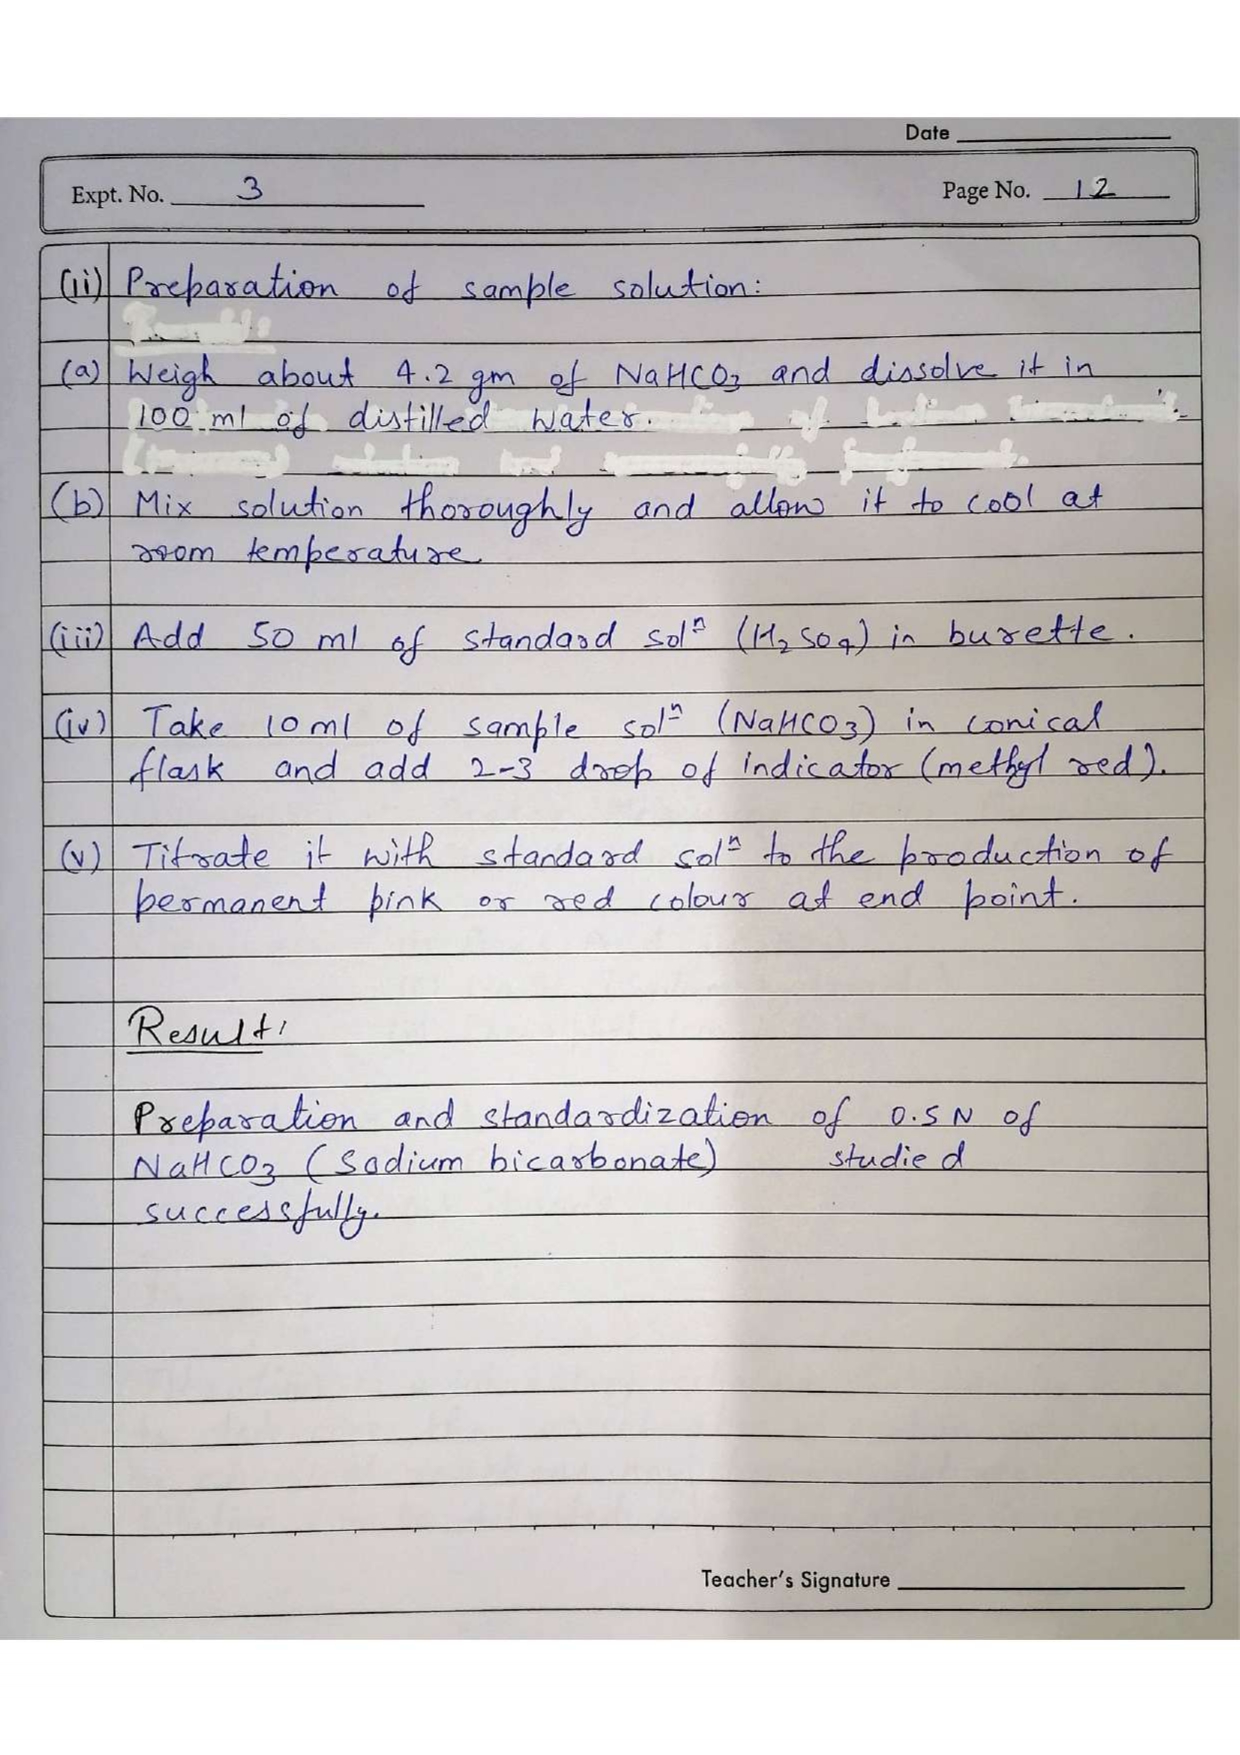 Date
Expt. No. 3
Page No. 12
(ii) Preparation of sample solution:
(a) Weigh about 4.2 gm of NaHCO3 and dissolve it in
100 ml of distilled water.
(b) Mix solution thoroughly and allow it to cool at
room temperature
(iii) Add 50 ml of standard solⁿ (H2SO4) in burette.
(iv) Take 10 ml of sample solⁿ (NaHCO3) in conical
flask and add 2-3 drop of indicator (methyl red).
(v) Titrate it with standard solⁿ to the production of
permanent pink or red colour at end point.
Result:
Preparation and standardization of 0.5 N of
NaHCO3 (Sodium bicarbonate) studied
successfully.
Teacher's Signature